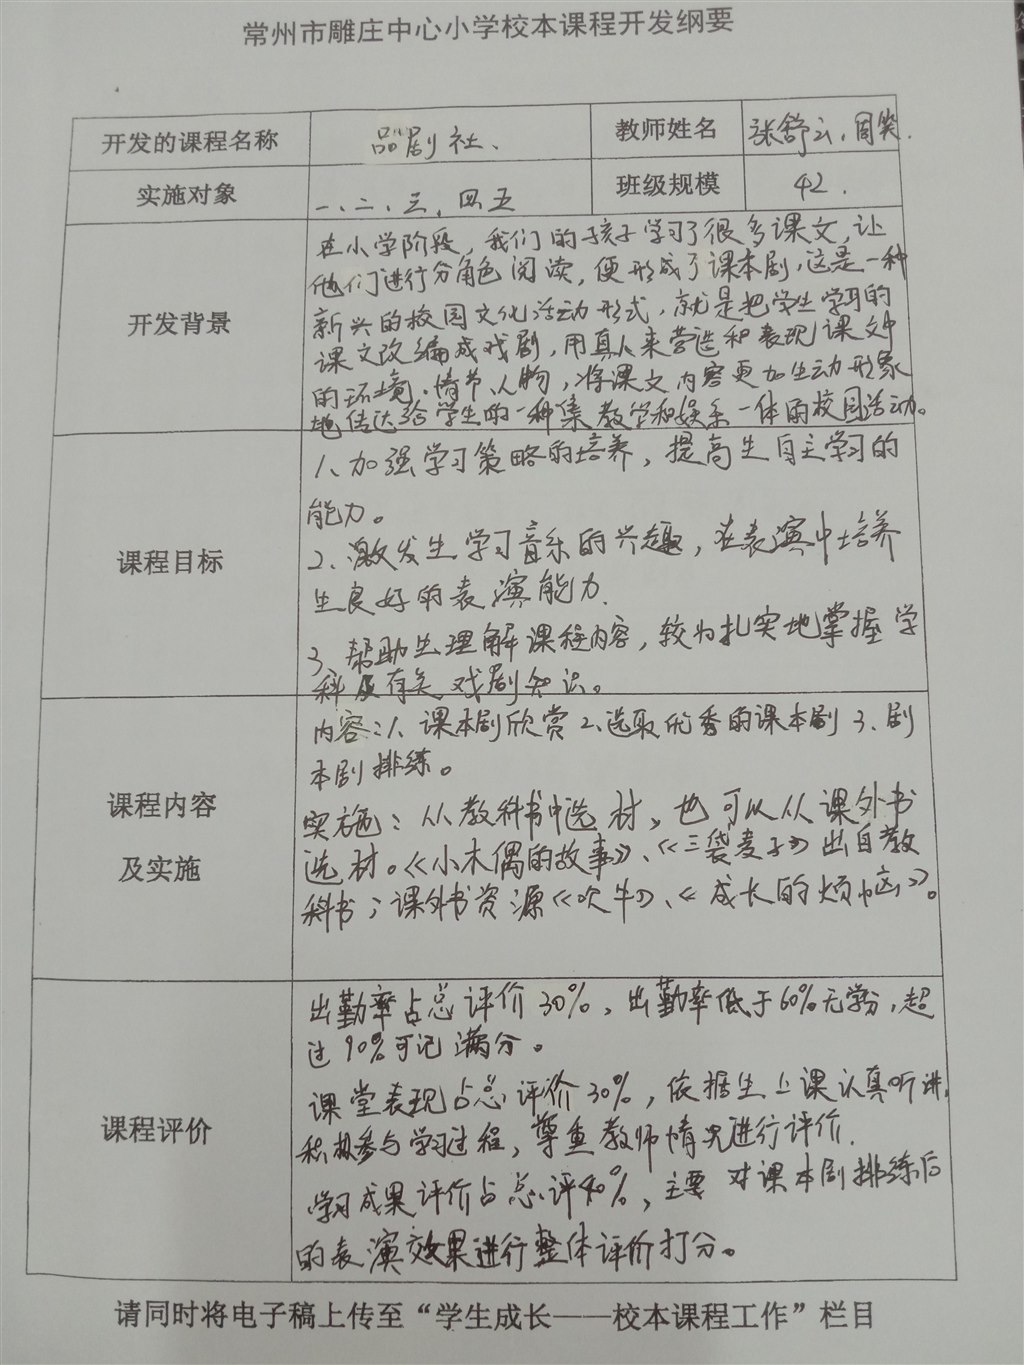 常州市雕庄中心小学校本课程开发纲要
开发的课程名称 品剧社、 教师姓名 张舒云、周笑.
实施对象 一、二、三、四五 班级规模 42.
开发背景
在小学阶段,我们的孩子学习了很多课文,让
他们进行分角色阅读,便形成了课本剧,这是一种
新兴的校园文化活动形式,就是把学生学习的
课文改编成戏剧,用真人来营造和表现课文中
的环境、情节、人物,将课文内容更加生动形象
地传达给学生的一种集教学和娱乐一体的校园活动。
课程目标
1、加强学习策略的培养,提高生自主学习的
能力。
2、激发生学习音乐的兴趣,在表演中培养
生良好的表演能力.
3、帮助生理解课程内容,较为扎实地掌握学
科及有关戏剧知识。
课程内容
及实施
内容:1、课本剧欣赏2、选取优秀的课本剧3、剧
本剧排练。
实施:从教科书中选材,也可以从课外书
选材。《小木偶的故事》、《三袋麦子》出自教
科书;课外书资源《吹牛》、《成长的烦恼》。
课程评价
出勤率占总评价30%,出勤率低于60%无学分,超
过90%可记满分。
课堂表现占总评价30%,依据生上课认真听讲,
积极参与学习过程,尊重教师情况进行评价.
学习成果评价占总评40%,主要对课本剧排练后
的表演效果进行整体评价打分。
请同时将电子稿上传至“学生成长——校本课程工作”栏目